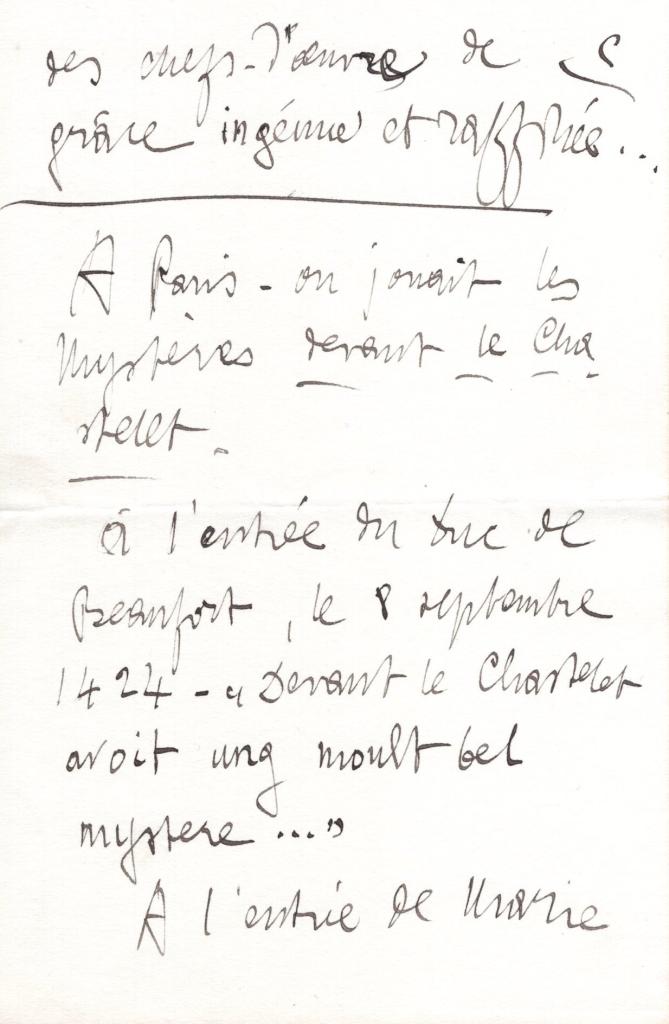 des chefs-d'œuvre de
grâce ingénue et raffinée...
A Paris - on jouait les
Mystères devant le Cha
stelet.
à l'entrée du Duc de
Beaufort, le 8 septembre
1424 - « Devant le Chastelet
avoit ung moult bel
mystere ... »
A l'entrée de Marie